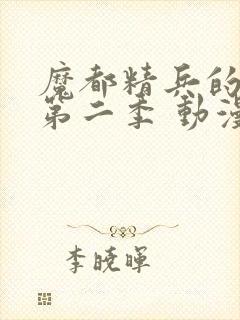 魔都精兵的
第二季 動漫
李曉暉